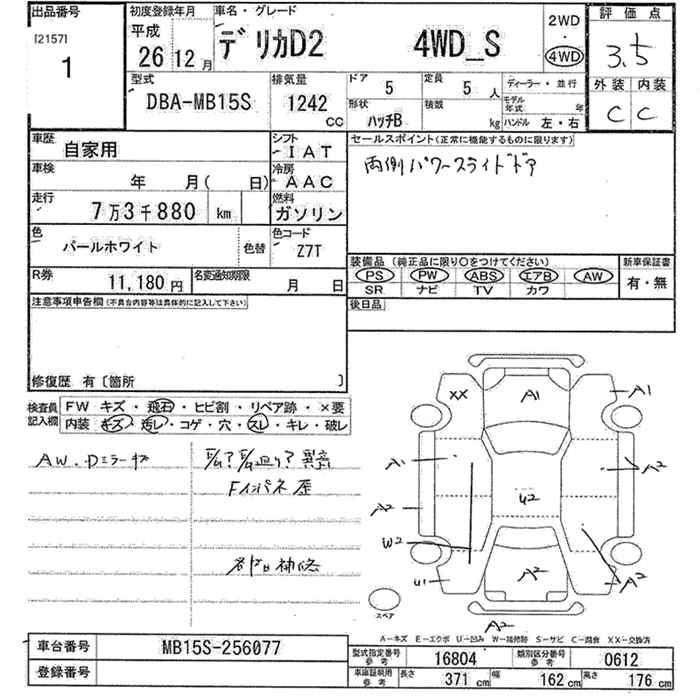 出品番号
[2157]
1
初度登録年月
平成
26 12 月
車名・グレード
デリカD2 4WD_S
2WD
・
4WD
評価点
3.5
外装 内装
C C
型式
DBA-MB15S
排気量
1242 CC
ドア
5
定員
5 人
形状
ハッチB
積載
kg
ディーラー・並行
モデル年式 年
ハンドル 左・右
車歴
自家用
シフト
IAT
車検
年 月( 日)
冷房
AAC
走行
7万3千880 km
燃料
ガソリン
色
パールホワイト
色替
色コード
Z7T
R券
11,180 円
名変通知期限
月 日
セールスポイント(正常に機能するものに限ります)
両側パワースライドドア
装備品(純正品に限り○をつけてください)
PS PW ABS エアB AW
SR ナビ TV カワ
新車保証書
有・無
後日品
注意事項申告欄(不具合内容等は具体的に記入して下さい)
修復歴 有〔箇所 〕
検査員記入欄
FW キズ・飛石・ヒビ割・リペア跡・×要
内装 キズ・汚レ・コゲ・穴・スレ・キレ・破レ
AW・Dミラーキズ
Fインパネ歴
補修
XX
A1
A1
A1
A2
A2
U2
W2
U1
A2
A2
A2
スペア
A−キズ E−エクボ U−凹み W−補修跡 S−サビ C−腐食 XX−交換済
車台番号
MB15S-256077
登録番号
型式指定番号
参考
16804
類別区分番号
参考
0612
車庫証明用
参考
長さ 371 cm
幅 162 cm
高さ 176 cm